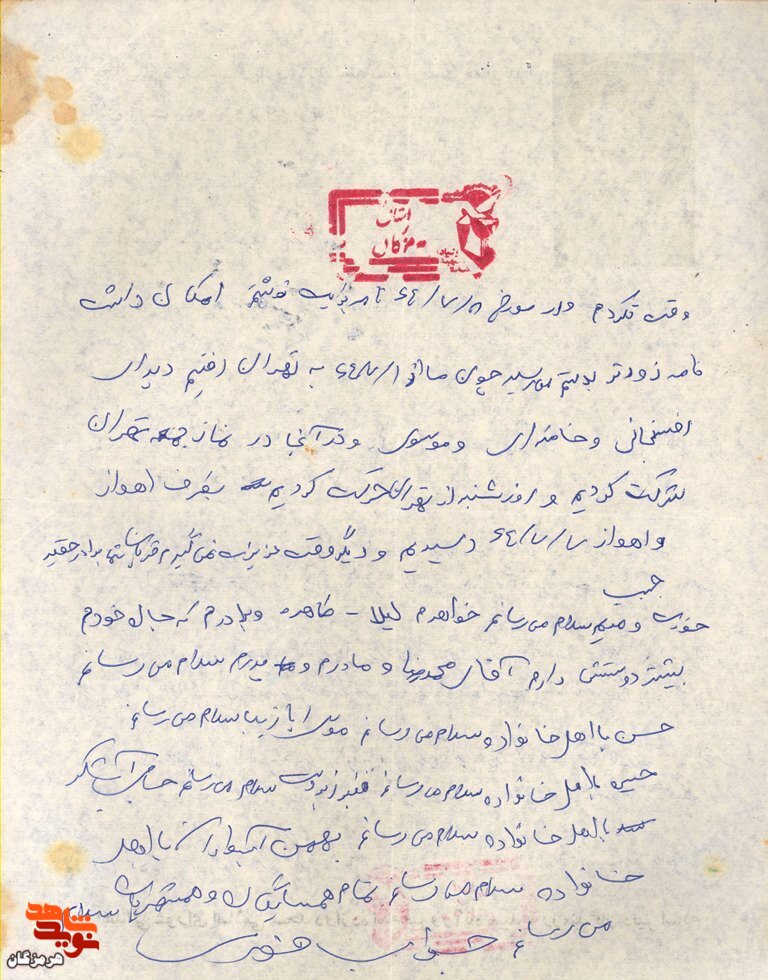 استان
هرمزگان
وقت نکردم در مورخ ۶۴/۷/۸ نامه برایت نوشتم امکان داشت
نامه زودتر بدستم میرسید چون ما ۶۴/۷/۱ به تهران رفتیم دیدار
رفسنجانی و خامنه ای و موسوی و در آنجا در نماز جمعه تهران
شرکت کردیم و روز شنبه از تهران حرکت کردیم بطرف اهواز
و اهواز ۶۴/۷/۷ رسیدیم و دیگر وقت عزیزت نمی گیرم قربانت برادر حقیر
حبیب
خودت و مریم سلام می رسانم خواهرم لیلا - طاهره و برادرم که جان خودم
بیشتر دوستش دارم آقای محمدرضا و مادرم و پدرم سلام می رسانم
حسن با اهل خانواده سلام می رسانم موسی سلام می رسانم
حسین با اهل خانواده سلام می رسانم سلام می رسانم
با اهل خانواده سلام می رسانم بهمن با اهل
خانواده سلام می رسانم تمام همسایگان و همشهریان سلام
می رسانم جواب فوری
نوید شاهد
هرمزگان